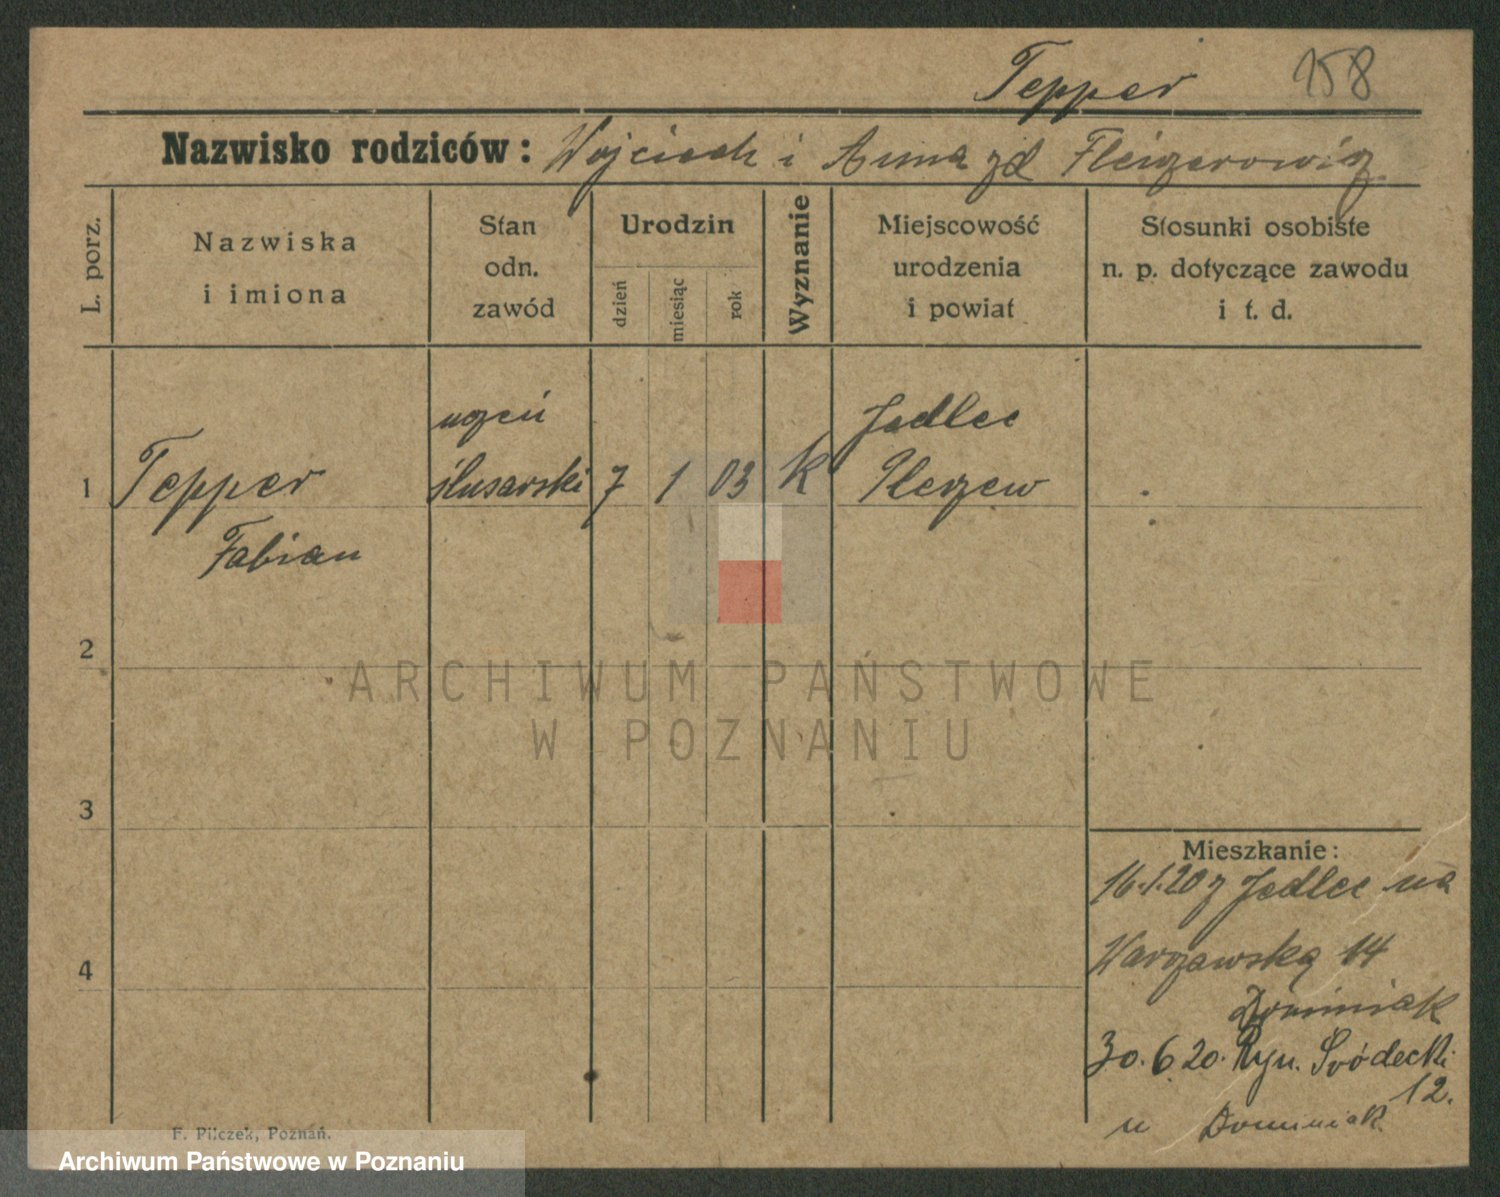 Tepper 158
Nazwisko rodziców: Wojciech i Anna zd Fleizerowicz
L. porz.
Nazwiska
i imiona
Stan
odn.
zawód
Urodzin
dzień
miesiąc
rok
Wyznanie
Miejscowość
urodzenia
i powiat
Stosunki osobiste
n. p. dotyczące zawodu
i t. d.
uczeń Jedlec
1 Tepper ślusarski 7 1 03 K Pleszew
Fabian
2
ARCHIWUM PAŃSTWOWE
W POZNANIU
3
Mieszkanie:
16.1.20 z Jedlec na
Warszawską 14
4
Dominiak
30.6.20. Ryn. Śródecki
12.
u Dominiak
F. Pilczek, Poznań.
Archiwum Państwowe w Poznaniu